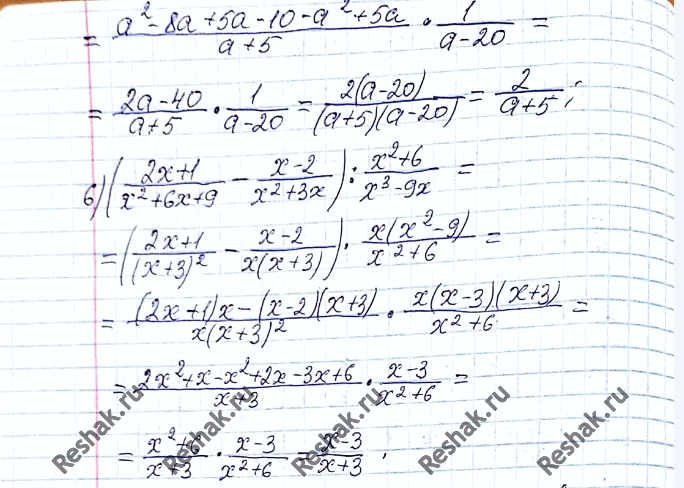 = (a² - 8a + 5a - 10 - a² + 5a)/(a + 5) · 1/(a - 20) =
= (2a - 40)/(a + 5) · 1/(a - 20) = 2(a - 20)/((a + 5)(a - 20)) = 2/(a + 5);
б) ((2x + 1)/(x² + 6x + 9) - (x - 2)/(x² + 3x)) : (x² + 6)/(x³ - 9x) =
= ((2x + 1)/(x + 3)² - (x - 2)/(x(x + 3))) · x(x² - 9)/(x² + 6) =
= ((2x + 1)x - (x - 2)(x + 3))/(x(x + 3)²) · x(x - 3)(x + 3)/(x² + 6) =
= (2x² + x - x² + 2x - 3x + 6)/(x + 3) · (x - 3)/(x² + 6) =
= (x² + 6)/(x + 3) · (x - 3)/(x² + 6) = (x - 3)/(x + 3).
Reshak.ru Reshak.ru Reshak.ru Reshak.ru Reshak.ru